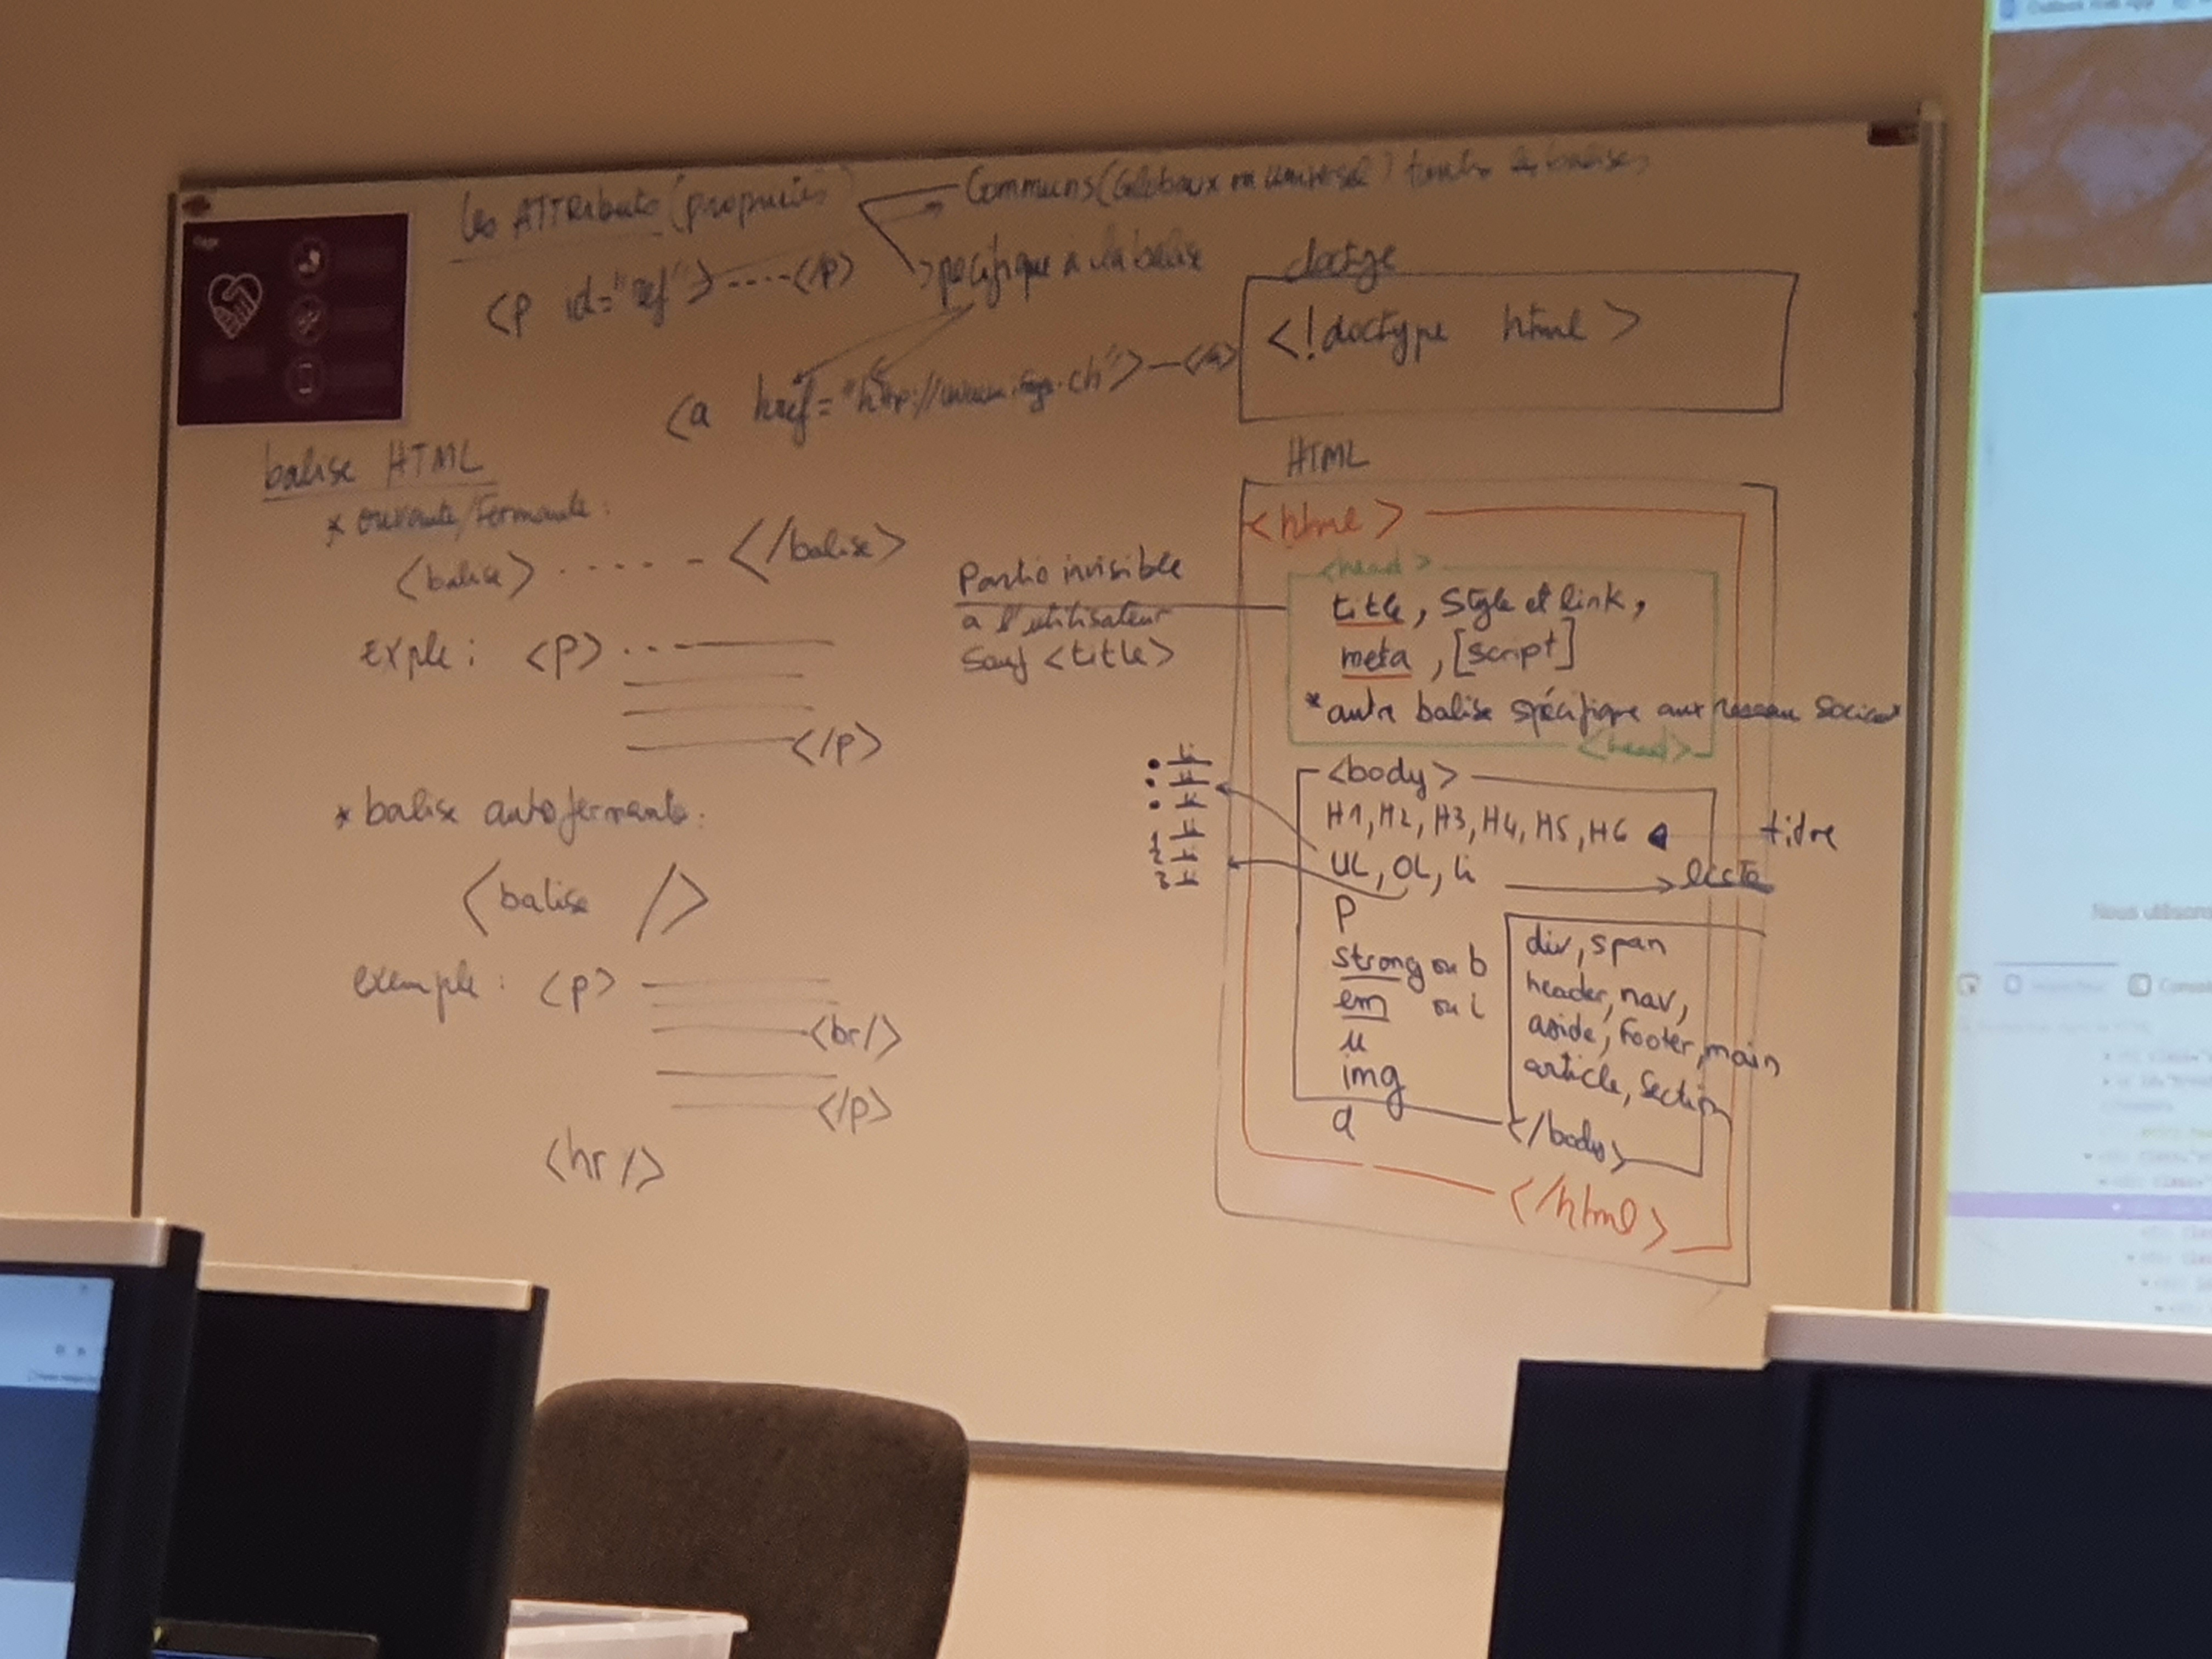 Les ATTRibuts (propriétés)
Communs (Globaux ou universel) toutes les balises
spécifique à la balise
<p id="ref"> ----</p>
<a href="http://www. .ch">—</a>
balise HTML
* ouvrante/Fermante :
<balise> ..... - </balise>
Exple : <P> ...
</p>
* balise autofermante :
<balise />
exemple : <p>
<br/>
</p>
<hr/>
doctype
<!doctype html >
HTML
<html>
<head>
title, Style et link,
meta, [script]
*autre balise spécifique aux reseau sociaux
<head>
Partie invisible
a l'utilisateur
Sauf <title>
<body>
H1, H2, H3, H4, H5, H6
titre
UL, OL, li
liste
li
li
li
1 li
2 li
3 li
P
strong ou b
em ou i
u
img
a
div, span
header, nav,
aside, Footer, main
article, Section
</body>
</html>
Nous utilisons